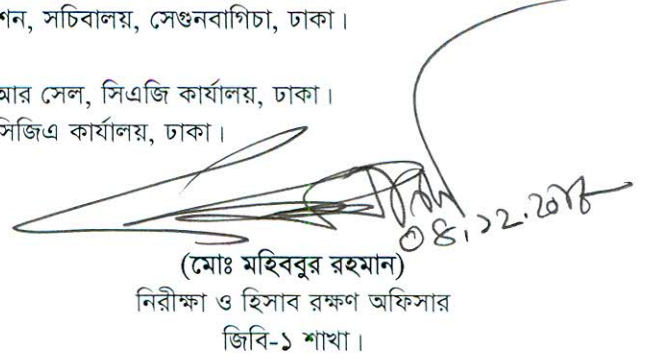 শন, সচিবালয়, সেগুনবাগিচা, ঢাকা।
আর সেল, সিএজি কার্যালয়, ঢাকা।
সিজিএ কার্যালয়, ঢাকা।
০৪.১২.২০১৮
(মোঃ মহিববুর রহমান)
নিরীক্ষা ও হিসাব রক্ষণ অফিসার
জিবি-১ শাখা।